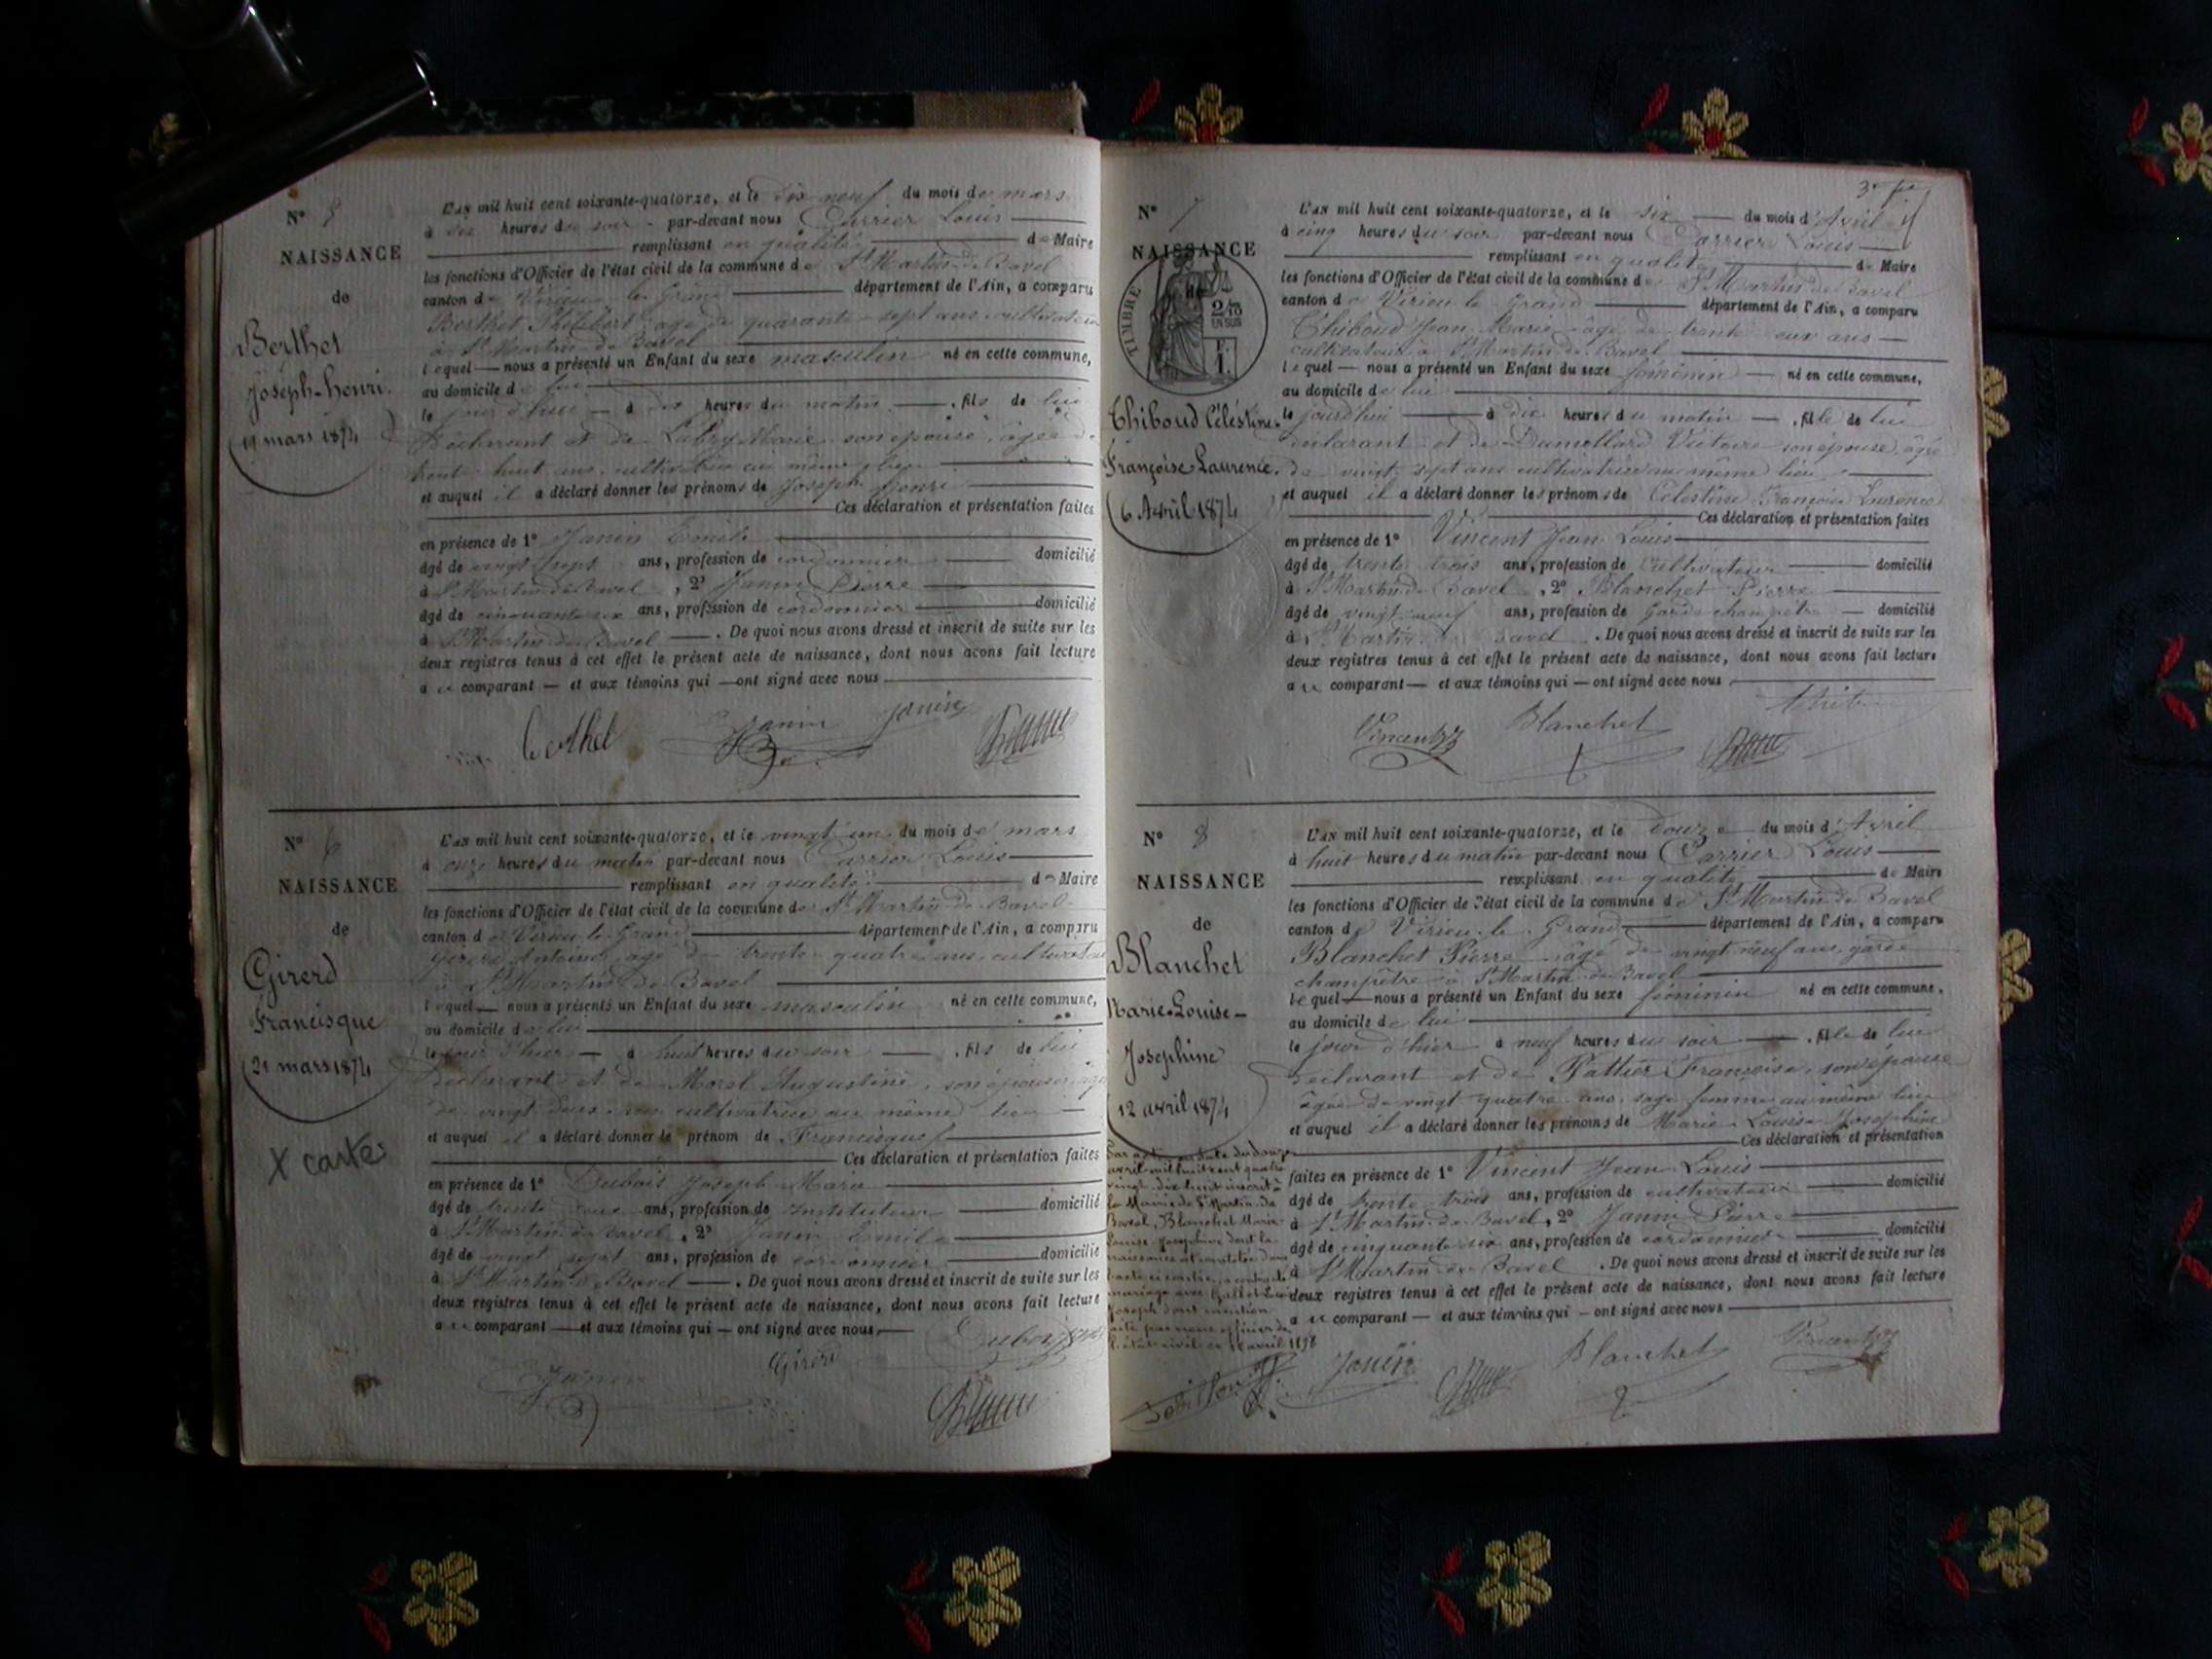 N° 5
NAISSANCE
de
Berthet
Joseph-henri.
19 mars 1874
L'AN mil huit cent soixante-quatorze, et le dix neuf du mois de mars
à six heures du soir par-devant nous Carrier Louis
remplissant en qualité de Maire
les fonctions d'Officier de l'état civil de la commune de St Martin de Bavel
canton de Virieu le Grand département de l'Ain, a comparu
Berthet Philibert âgé de quarante-sept ans cultivateur
à St Martin de Bavel
lequel nous a présenté un Enfant du sexe masculin né en cette commune,
au domicile de lui
le jour d'hui à dix heures du matin, fils de lui
Déclarant et de Labry Marie son épouse, âgée de
trente huit ans, cultivatrice au même lieu
et auquel il a déclaré donner les prénoms de Joseph Henri
Ces déclaration et présentation faites
en présence de 1° Janin Emile
âgé de vingt sept ans, profession de cordonnier domicilié
à St Martin de Bavel, 2° Janin Pierre
âgé de cinquante six ans, profession de cordonnier domicilié
à St Martin de Bavel. De quoi nous avons dressé et inscrit de suite sur les
deux registres tenus à cet effet le présent acte de naissance, dont nous avons fait lecture
au comparant et aux témoins qui ont signé avec nous
Berthet Janin Janin
N° 6
NAISSANCE
de
Girerd
Francisque
21 mars 1874
X carte
L'AN mil huit cent soixante-quatorze, et le vingt un du mois de mars
à onze heures du matin par-devant nous Carrier Louis
remplissant en qualité de Maire
les fonctions d'Officier de l'état civil de la commune de St Martin de Bavel
canton de Virieu le Grand département de l'Ain, a comparu
Girerd Antoine âgé de trente quatre ans, cultivateur
à St Martin de Bavel
lequel nous a présenté un Enfant du sexe masculin né en cette commune,
au domicile de lui
le jour d'hier à huit heures du soir, fils de lui
Déclarant et de Morel Augustine, son épouse, âgée
de vingt deux ans cultivatrice au même lieu
et auquel il a déclaré donner le prénom de Francisque
Ces déclaration et présentation faites
en présence de 1° Dubois Joseph Marie
âgé de trente ans, profession de instituteur domicilié
à St Martin de Bavel, 2° Janin Emile
âgé de vingt sept ans, profession de cordonnier domicilié
à St Martin de Bavel. De quoi nous avons dressé et inscrit de suite sur les
deux registres tenus à cet effet le présent acte de naissance, dont nous avons fait lecture
au comparant et aux témoins qui ont signé avec nous
Janin Girerd Dubois
N° 7
NAISSANCE
TIMBRE
2/10
EN SUS
F.
1.
Thiboud Céléstine
Françoise Laurence.
6 Avril 1874
L'AN mil huit cent soixante-quatorze, et le six du mois d'Avril
à cinq heures du soir par-devant nous Carrier Louis
remplissant en qualité de Maire
les fonctions d'Officier de l'état civil de la commune de St Martin de Bavel
canton de Virieu le Grand département de l'Ain, a comparu
Thiboud Jean Marie âgé de trente ans
cultivateur à St Martin de Bavel
lequel nous a présenté un Enfant du sexe féminin né en cette commune,
au domicile de lui
le jourd'hui à dix heures du matin, fille de lui
déclarant et de Dumollard Victoire son épouse, âgée
de vingt sept ans cultivatrice au même lieu
et auquel il a déclaré donner les prénoms de Célestine Françoise Laurence
Ces déclaration et présentation faites
en présence de 1° Vincent Jean Louis
âgé de trente trois ans, profession de cultivateur domicilié
à St Martin de Bavel, 2° Blanchet Pierre
âgé de vingt neuf ans, profession de Garde champêtre domicilié
à St Martin de Bavel. De quoi nous avons dressé et inscrit de suite sur les
deux registres tenus à cet effet le présent acte de naissance, dont nous avons fait lecture
au comparant et aux témoins qui ont signé avec nous
Vincent Blanchet
N° 8
NAISSANCE
de
Blanchet
Marie-Louise-
Joséphine
12 avril 1874
L'AN mil huit cent soixante-quatorze, et le douze du mois d'Avril
à huit heures du matin par-devant nous Carrier Louis
remplissant en qualité de Maire
les fonctions d'Officier de l'état civil de la commune de St Martin de Bavel
canton de Virieu le Grand département de l'Ain, a comparu
Blanchet Pierre âgé de vingt neuf ans, garde
champêtre à St Martin de Bavel
lequel nous a présenté un Enfant du sexe féminin né en cette commune,
au domicile de lui
le jour d'hier à neuf heures du soir, fille de lui
déclarant et de Pattier Françoise, son épouse
âgée de vingt quatre ans, sage femme au même lieu
et auquel il a déclaré donner les prénoms de Marie Louise Joséphine
Ces déclaration et présentation
faites en présence de 1° Vincent Jean Louis
âgé de trente trois ans, profession de cultivateur domicilié
à St Martin de Bavel, 2° Janin Pierre
âgé de cinquante six ans, profession de cordonnier domicilié
à St Martin de Bavel. De quoi nous avons dressé et inscrit de suite sur les
deux registres tenus à cet effet le présent acte de naissance, dont nous avons fait lecture
au comparant et aux témoins qui ont signé avec nous
Par acte en date du douze
avril mil huit cent quatre
vingt dix huit inscrit à
la Mairie de St Martin de
Bavel, Blanchet Marie
Louise Joséphine dont la
naissance est constatée dans
l'acte ci contre, a contracté
mariage avec Gallet
Joseph dont mention
faite par nous officier de
l'état civil avril 1898
Janin Blanchet Vincent